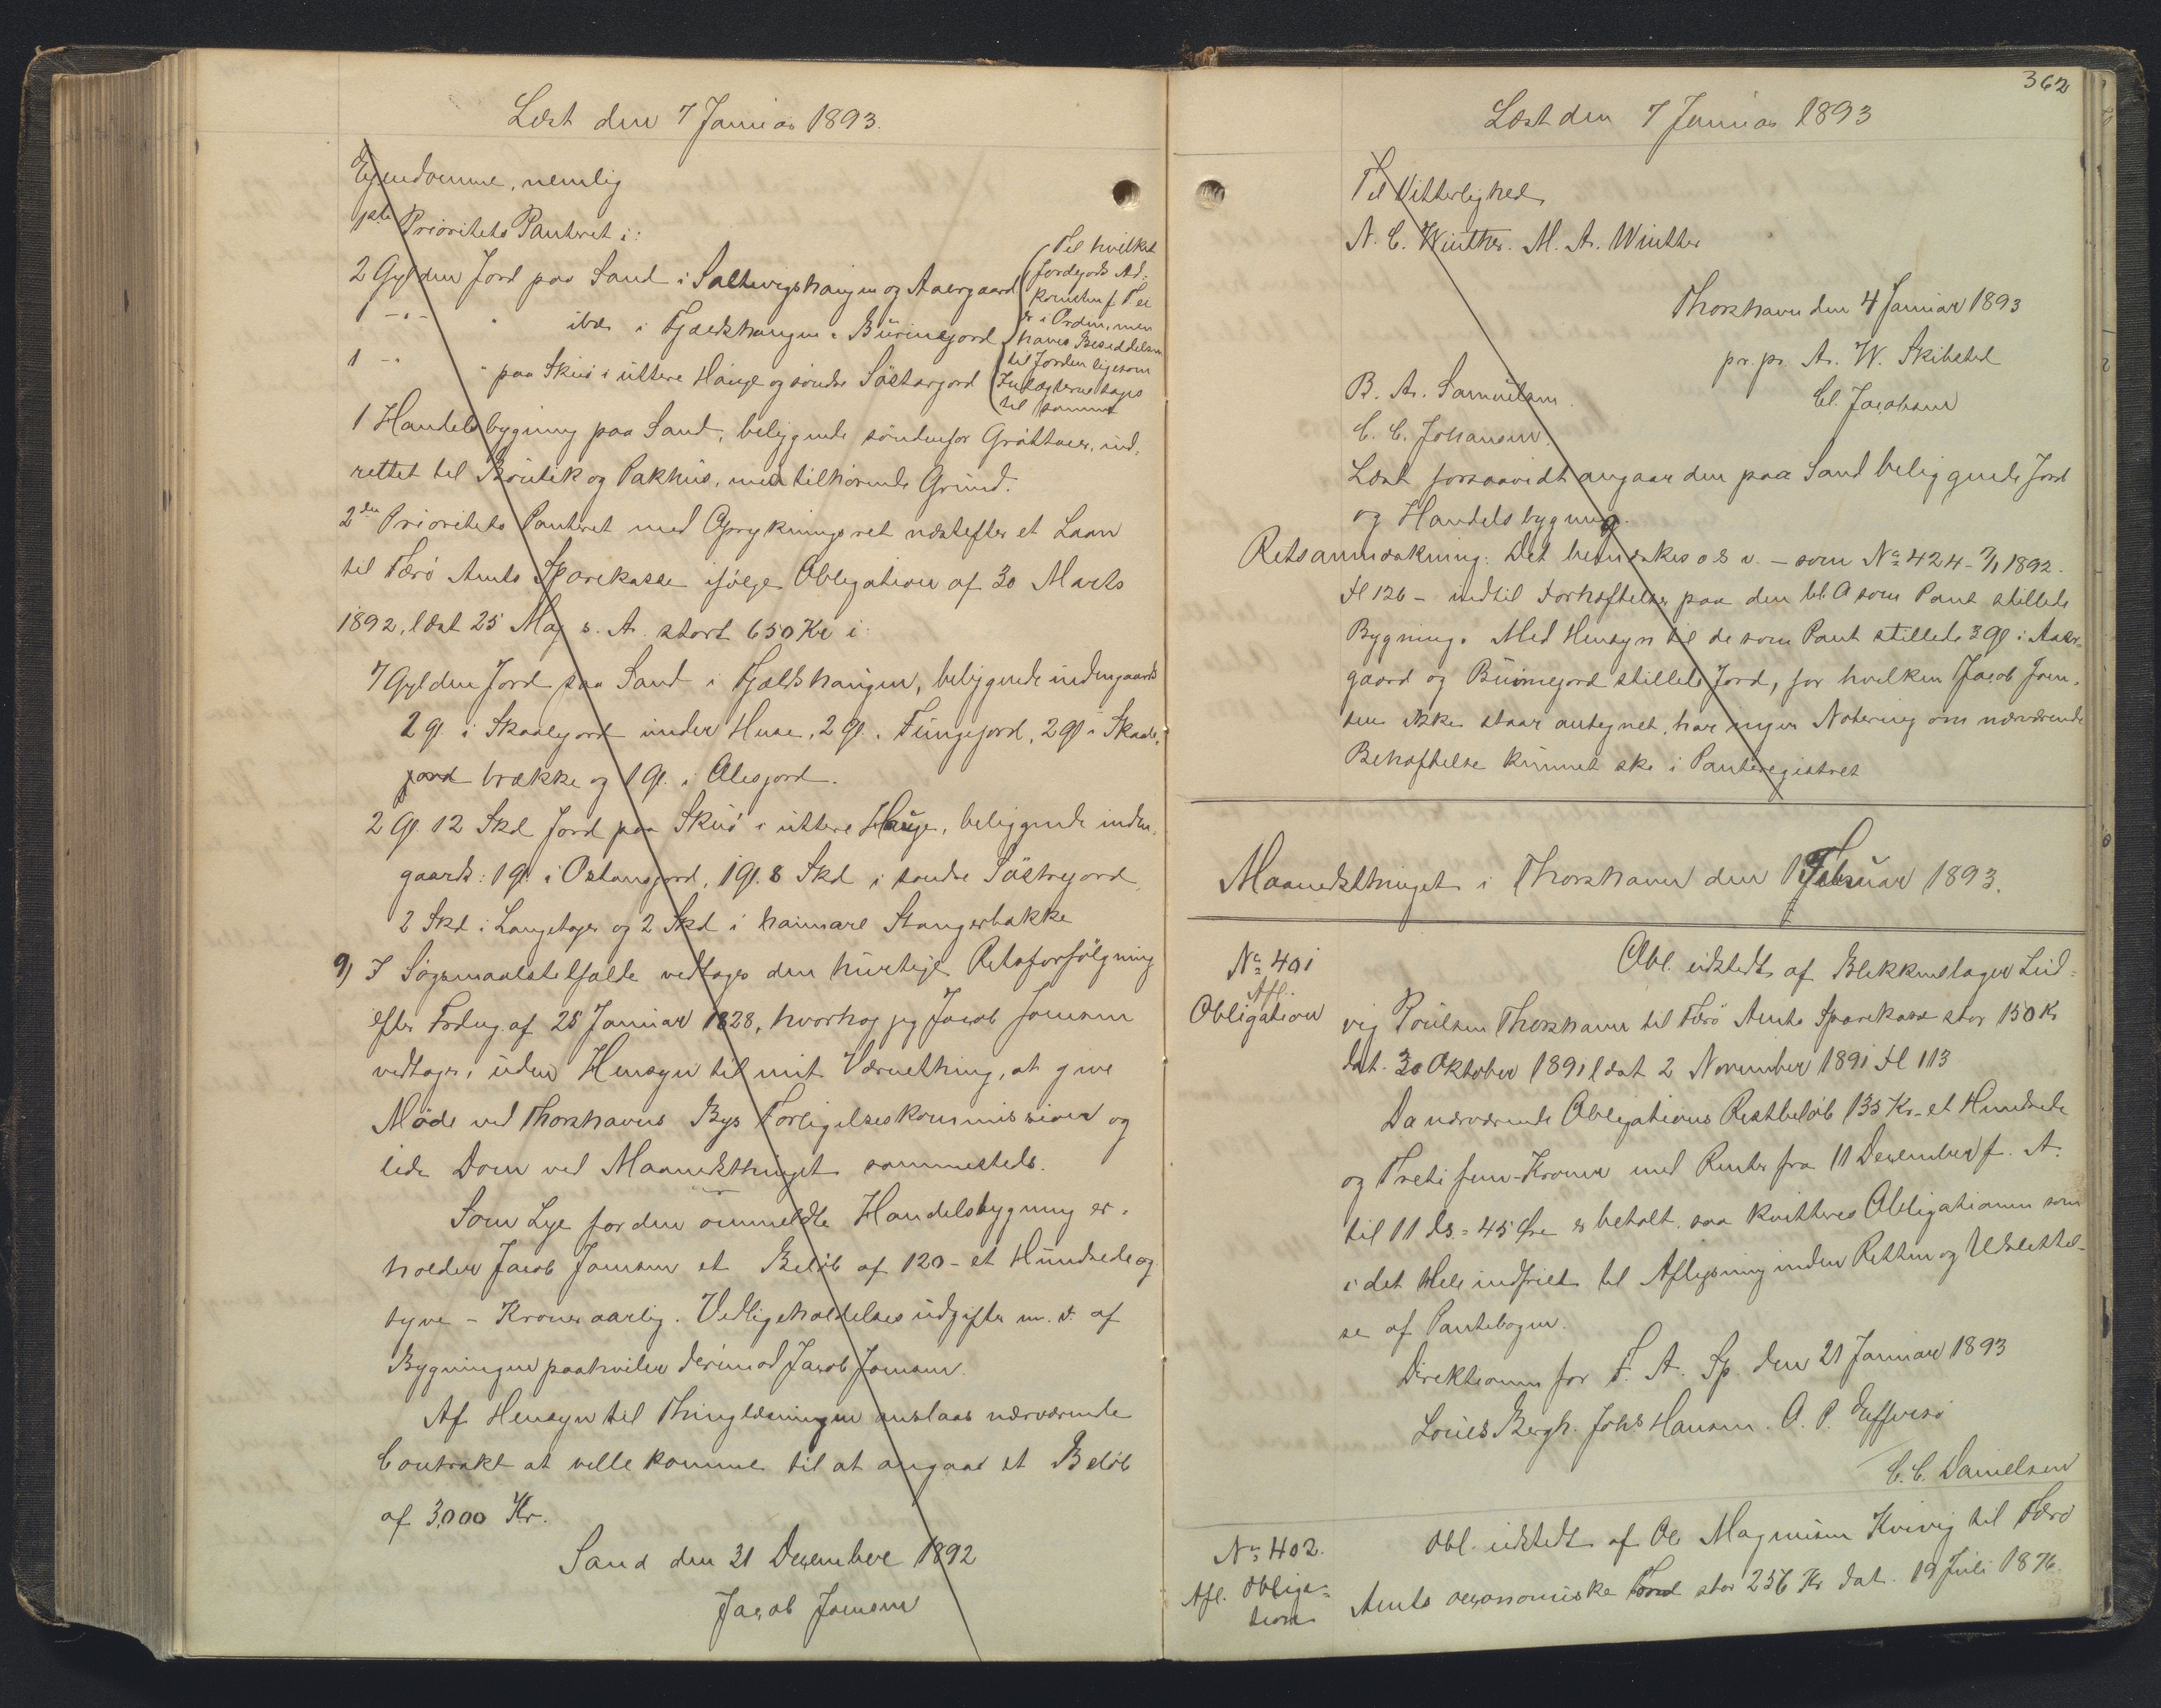 Læst den 7 Januar 1893.
Ejendomme, nemlig
1ste Prioritets Panteret i:
2 Gylden Jord paa Sand i Saltvigshaugen og Aaergaard
1 -"- " ibd. i Fjældshaugen i Búrinegjord
1 -" " paa Skuø i uttere Hauge og søndre Søstergjord
(Til hvilket
Jordegods Ad-
komsten f. T. ei
er i Orden, men
haves Besiddelsen
til Jorden ligesom
Indtægterne tages
til samme
1 Handelsbygning paa Sand, beliggende søndenfor Gróttaer, ind-
rettet til Boutik og Pakhus, med tilhørende Grund.
2den Prioritets Panteret med Oprykningsret næstefter et Laan
til Færø Amts Sparekasse ifølge Obligation af 30 Marts
1892, læst 25 Maj s. A. stort 650 Kr i:
7 Gylden Jord paa Sand i Fjældshaugen, beliggende indengaards
2 gl. i Skaalegjord under Huse, 2 gl. i Tungegjord, 2 gl i Skaale-
jord brække og 1 Gl. i Olesgjord.
2 Gl. 12 Skd Jord paa Skuø i uttere Hauge, beliggende inden-
gaards: 1 gl. i Ostansgjord, 1 gl. 8 Skd i søndre Søstregjord,
2 Skd i Langeteger og 2 Skd i haimare Stangerbakke
9) I Søgsmaalstilfælde vedtages den hurtige Retsforfølgning
efter Frdng. af 25 Januar 1828, hvorhos jeg Jacob Joensen
vedtager, uden Hensyn til mit Værnething, at give
Møde ved Thorshavns Bys Forligelseskommission og
lide Dom ved Maanedsthinget sammesteds.
Som Leje for den ommeldte Handelsbygning er-
holder Jacob Joensen et Beløb af 120 - et Hundrede og
tyve - Kroner aarlig. Vedligeholdelsesudgifter m. v. af
Bygningen paahviler derimod Jacob Joensen.
Af Hensyn til Thinglæsningen anslaas nærværende
Contrakt at ville komme til at angaae et Beløb
af 3,000 Kr.
Sand den 31 December 1892
Jacob Joensen
362
Læst den 7 Januar 1893
Til Vitterlighed
N. C. Winther. M. A. Winther
Thorshavn den 4 Januar 1893
pr. pr. A. W. Skibsted
B. A. Samuelsen.
Cl. Jacobsen
C. C. Johansen.
Læst forsaavidt angaar den paa Sand beliggende Jord
og Handelsbygning.
Retsanmærkning: Det bemærkes o s v. - som No 424 - 7/1 1892.
Fl 126 - indtil Forhæftelser paa den bl. A som Pant stillede
Bygning. Med Hensyn til de som Pant stillede 3 Gl i Aaer-
gaard og Búrinegjord stillede Jord, for hvilken Jacob Joen-
sen ikke staar antegnet, har ingen Notering om nærværende
Behæftelse kunnet ske i Panteregistret
Maanedsthinget i Thorshavn den 1 Februar 1893.
No 401
Afl.
Obligation
Obl. udstedt af Blikkenslager Lud-
vig Poulsen Thorshavn til Færø Amts Sparekasse stor 150 Kr
dat. 30 Oktober 1891 læst 2 November 1891 Fl 113
Da nærværende Obligations Restbeløb 135 Kr. - et Hundrede
og Treti fem - Kroner med Renter fra 11 December f. A.
til 11 ds. = 45 Øre er betalt, saa kvitteres Obligationen som
i det Hele indfriet til Aflysning inden Retten og Udslettel-
se af Pantebogen.
Direktionen for F. A. Sp. den 21 Januar 1893
Louis Bergh. Johs Hansen. O. P. Effersø
C. C. Danielsen
No 402.
Afl. Obliga-
tion
Obl. udstedt af Ole Magnusen Kvivig til Færø
Amts oeconomiske Fond stor 256 Kr dat. 19 Juli 1876.